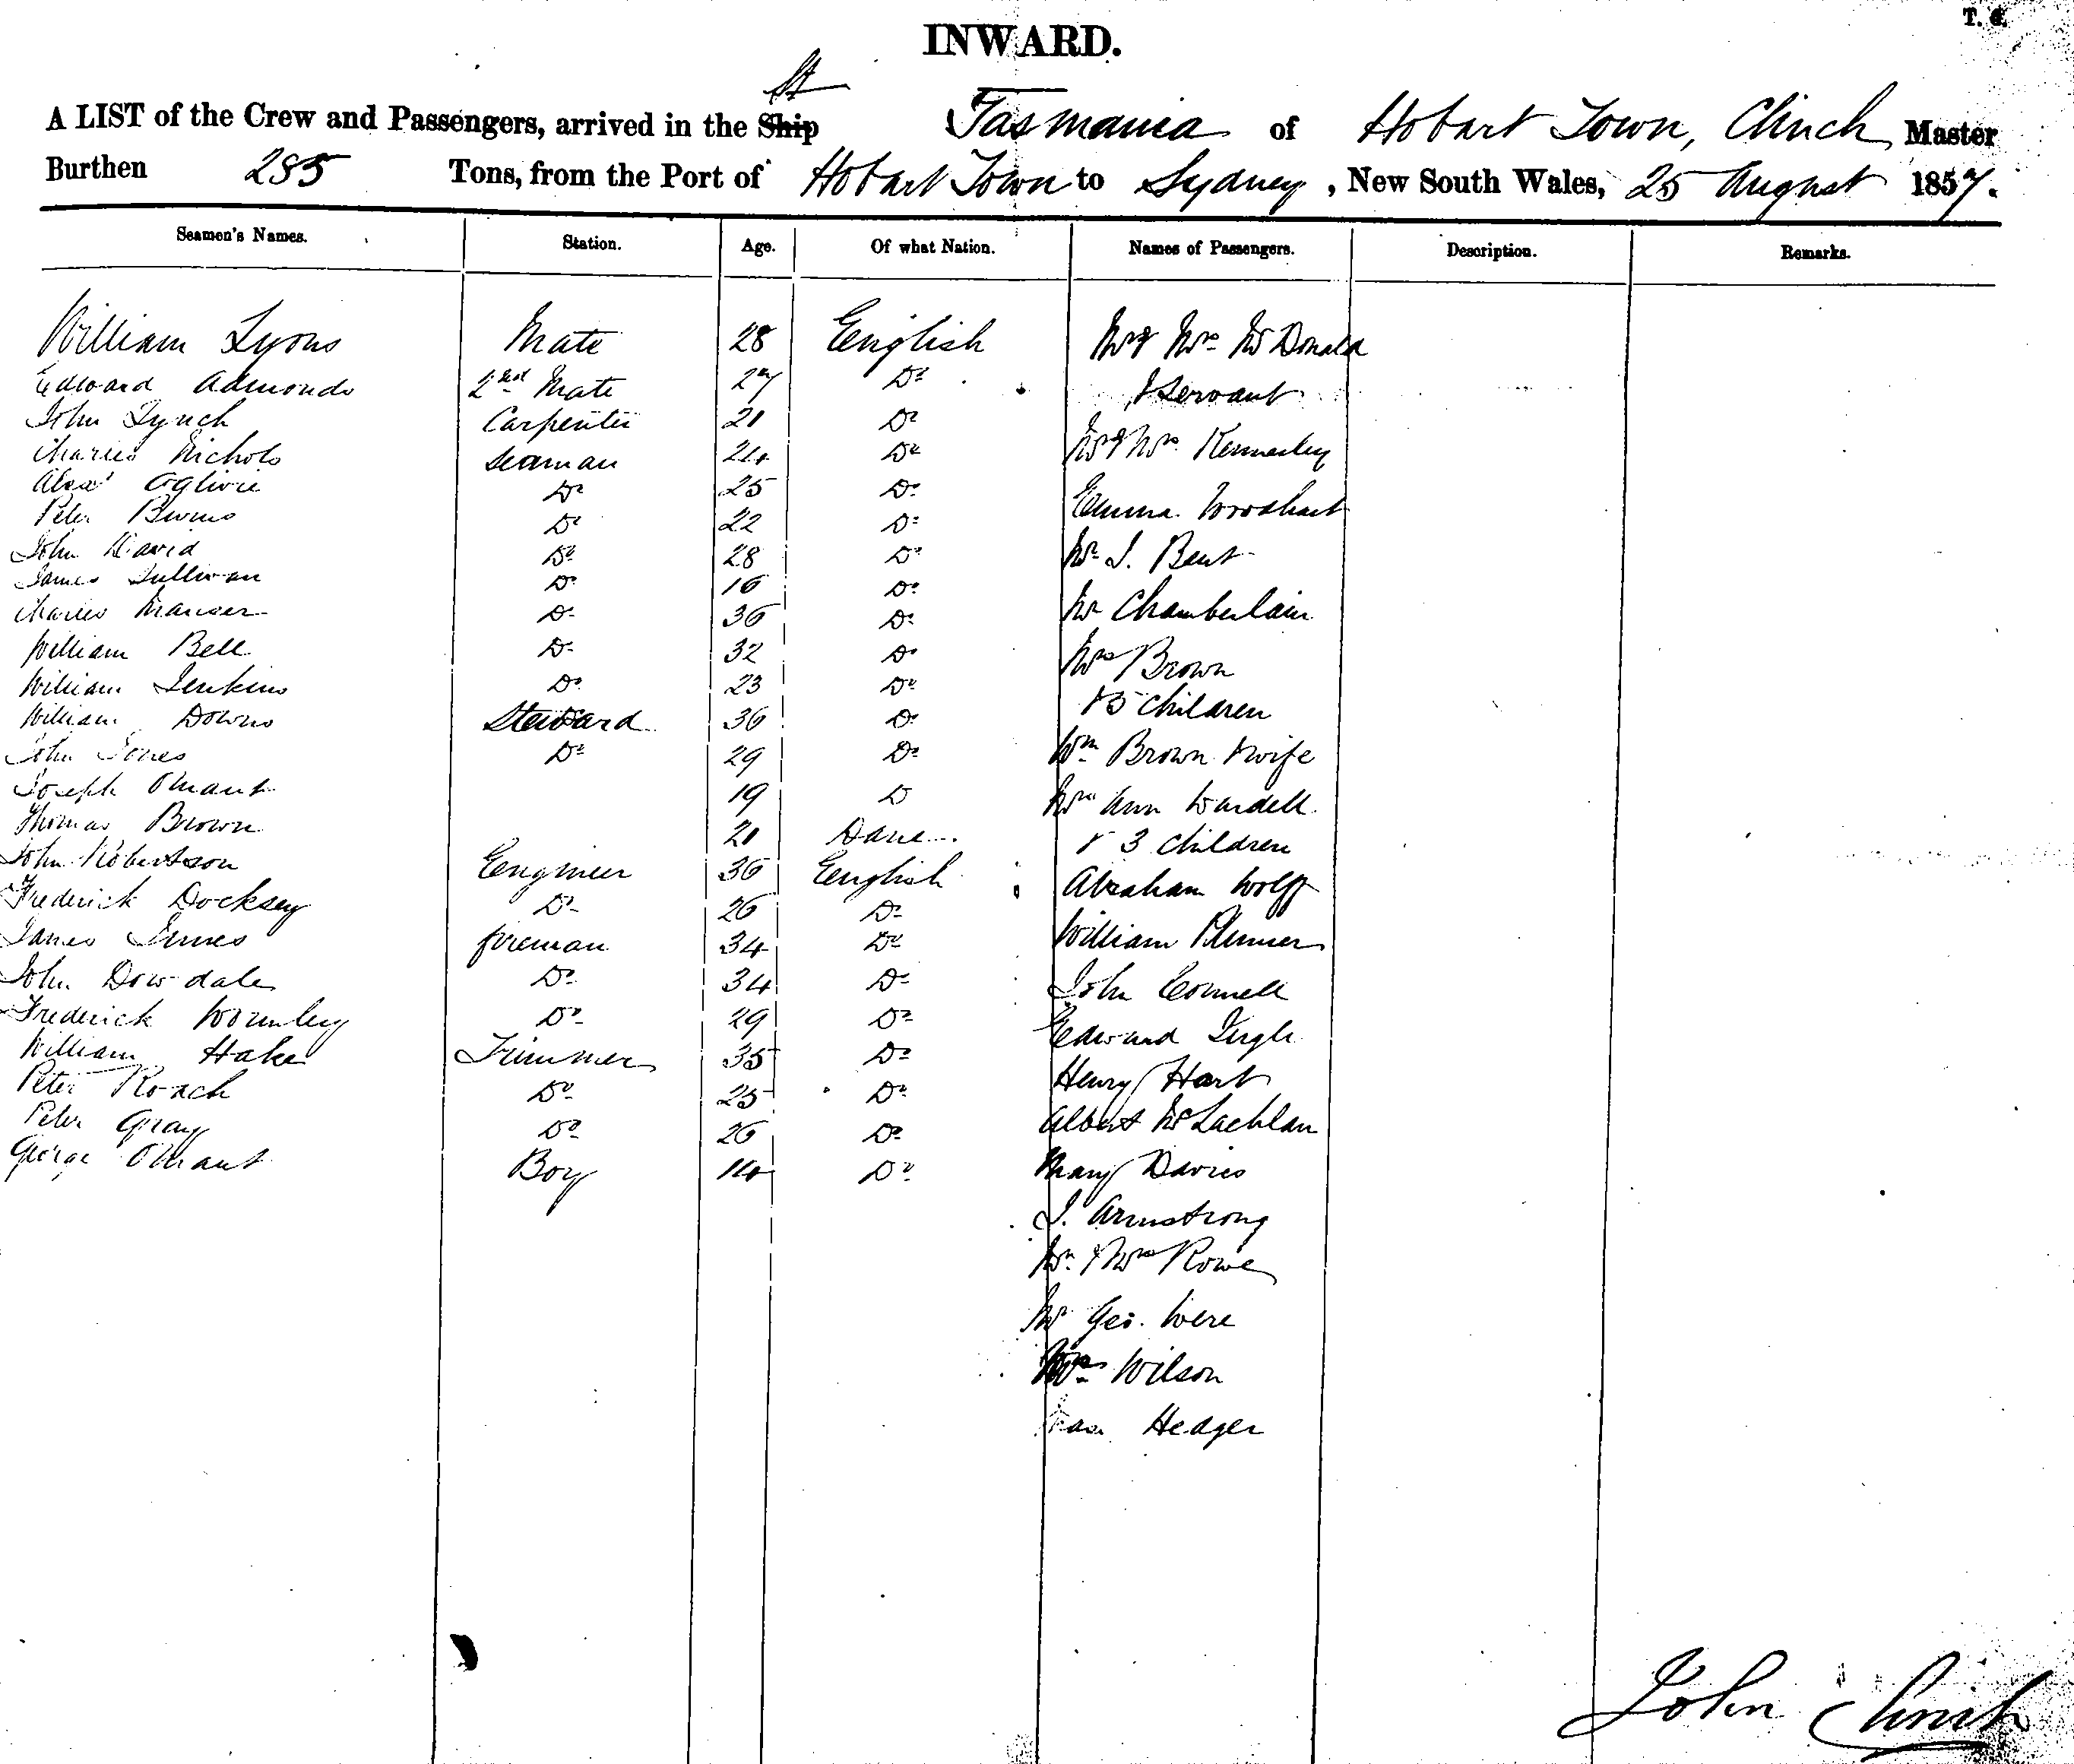 T. C.
INWARD.
St
A LIST of the Crew and Passengers, arrived in the Ship Tasmania of Hobart Town, Clinch Master
Burthen 285 Tons, from the Port of Hobart Town to Sydney, New South Wales, 25 August 1857.
Seamen's Names. Station. Age. Of what Nation. Names of Passengers. Description. Remarks.
William Lyons Mate 28 English Mr & Mrs McDonald
Edward Admonds 2nd Mate 27 Do & Servant
John Lynch Carpenter 21 Do
Charles Nichols Seaman 24 Do Mr & Mrs Kennerley
Alexr Oglivie Do 25 Do
Peter Burns Do 22 Do Emma Woodhart
John David Do 28 Do Mr J. Bent
James Sullivan Do 16 Do
Charles Manser Do 36 Do Mr Chamberlain
William Bell Do 32 Do Mrs Brown
William Jenkins Do 23 Do & 5 Children
William Downs Steward 36 Do
John Jones Do 29 Do Wm Brown & wife
Joseph 19 D Mrs Ann Wardell
Thomas Brown 21 Dane & 3 Children
John Robertson Eengineer 36 Eenglish Abraham Wolff
Frederick Docksey Do 26 Do
James Fireman 34 Do William Plummer
John Dowdale Do 34 Do John Connell
Frederick Wormley Do 29 Do Edward
William Hake Trimmer 35 Do Henry Hart
Peter Roach Do 25 Do
Peter Gray Do 26 Do Albert McLachlan
George Boy 14 Do Mary Davies
J. Armstrong
Mr & Mrs Rowe
Mr Geo. Were
Mrs Wilson
Hedger
John Clinch